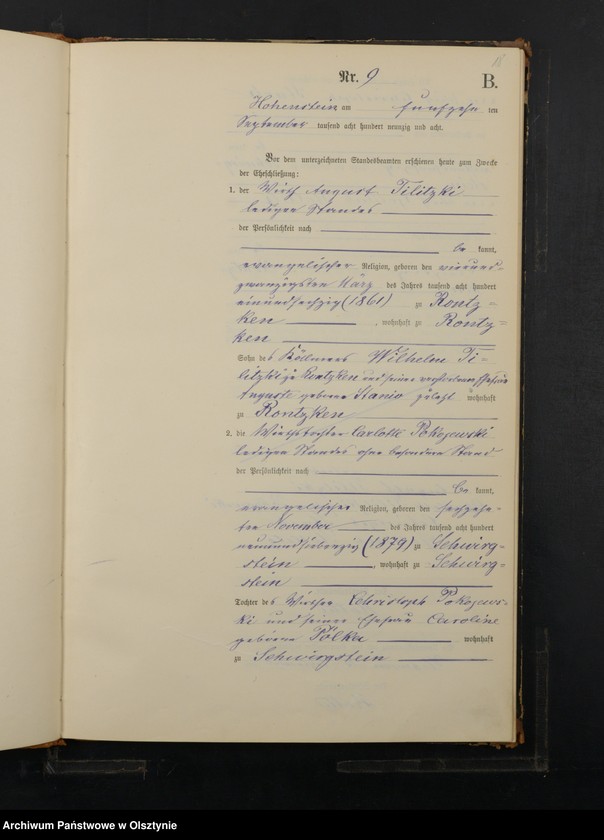 Nr. 9
B.
Hohenstein am fünfzehn ten
September tausend acht hundert neunzig und acht.
Vor dem unterzeichneten Standesbeamten erschienen heute zum Zwecke
der Eheschließung:
1. der Wirth August Tilitzki
ledigen Standes
der Persönlichkeit nach
be kannt,
evangelischer Religion, geboren den vierund-
zwanzigsten März des Jahres tausend acht hundert
einundsechzig (1861) zu Rontz-
ken, wohnhaft zu Rontz-
ken
Sohn des Köllmers Wilhelm Ti-
litzki zu Rontzken und seiner verstorbenen Ehefrau
Auguste geborene Stanio zuletzt wohnhaft
zu Rontzken
2. die Wirthstochter Carlotte Pokojewski
ledigen Standes ohne besonderen Stand
der Persönlichkeit nach
be kannt,
evangelischer Religion, geboren den sechzehn-
ten November des Jahres tausend acht hundert
neunundsiebenzig (1879) zu Schwirg-
stein, wohnhaft zu Schwirg-
stein
Tochter des Wirthen Christoph Pokojews-
ki und seiner Ehefrau Caroline
geborene Pölka wohnhaft
zu Schwirgstein
Archiwum Państwowe w Olsztynie